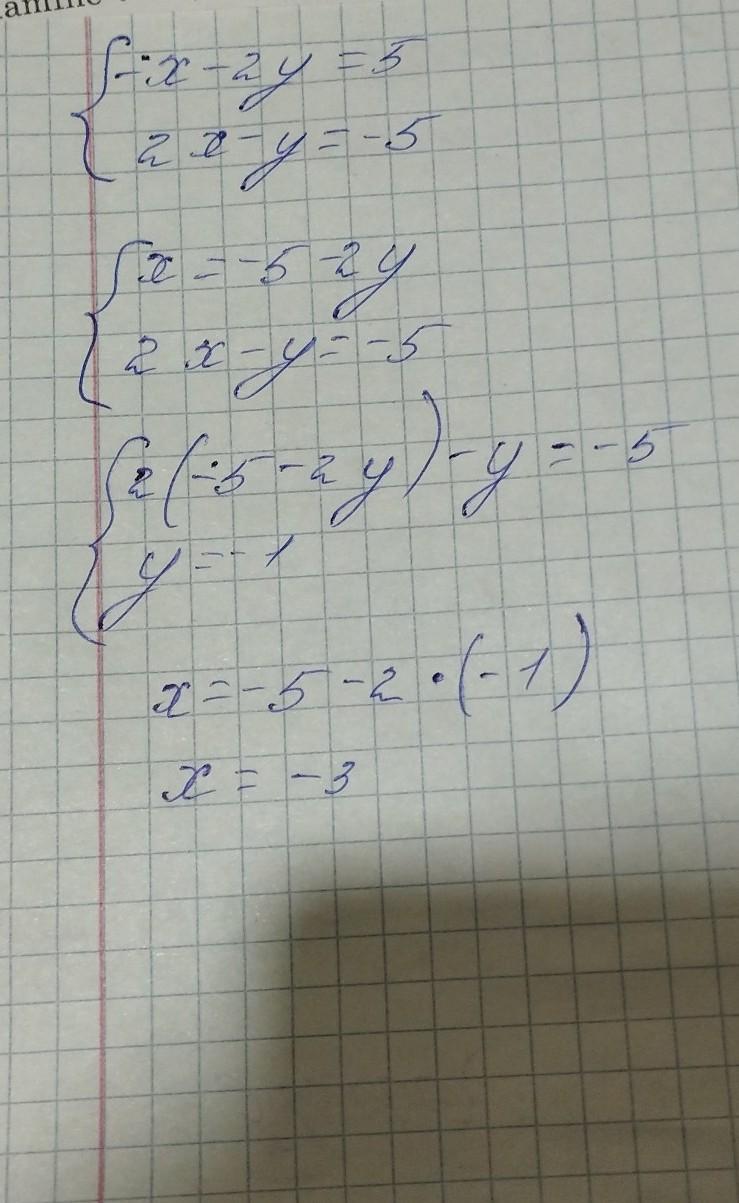 -x-2y=5
2x-y=-5
x=-5-2y
2x-y=-5
2(-5-2y)-y=-5
y=-1
x=-5-2·(-1)
x=-3